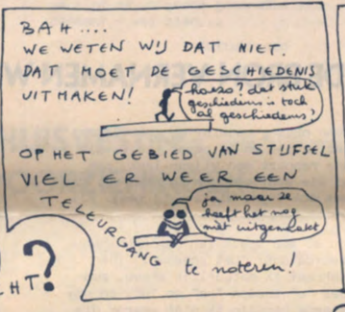 BAH ....
WE WETEN WIJ DAT NIET.
DAT MOET DE GESCHIEDENIS
UITMAKEN!
hoezo? dat stuk
geschiedenis is toch
al geschiedenis?
OP HET GEBIED VAN STIJFSEL
VIEL ER WEER EEN
TELEURGANG
te noteren!
ja maar ze
heeft het nog
niet uitgemaakt
CHT?